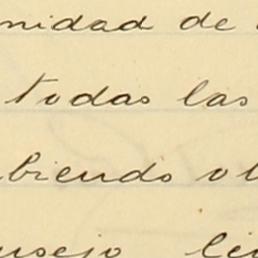 nidad de
todas las
biendo ob
nsejo